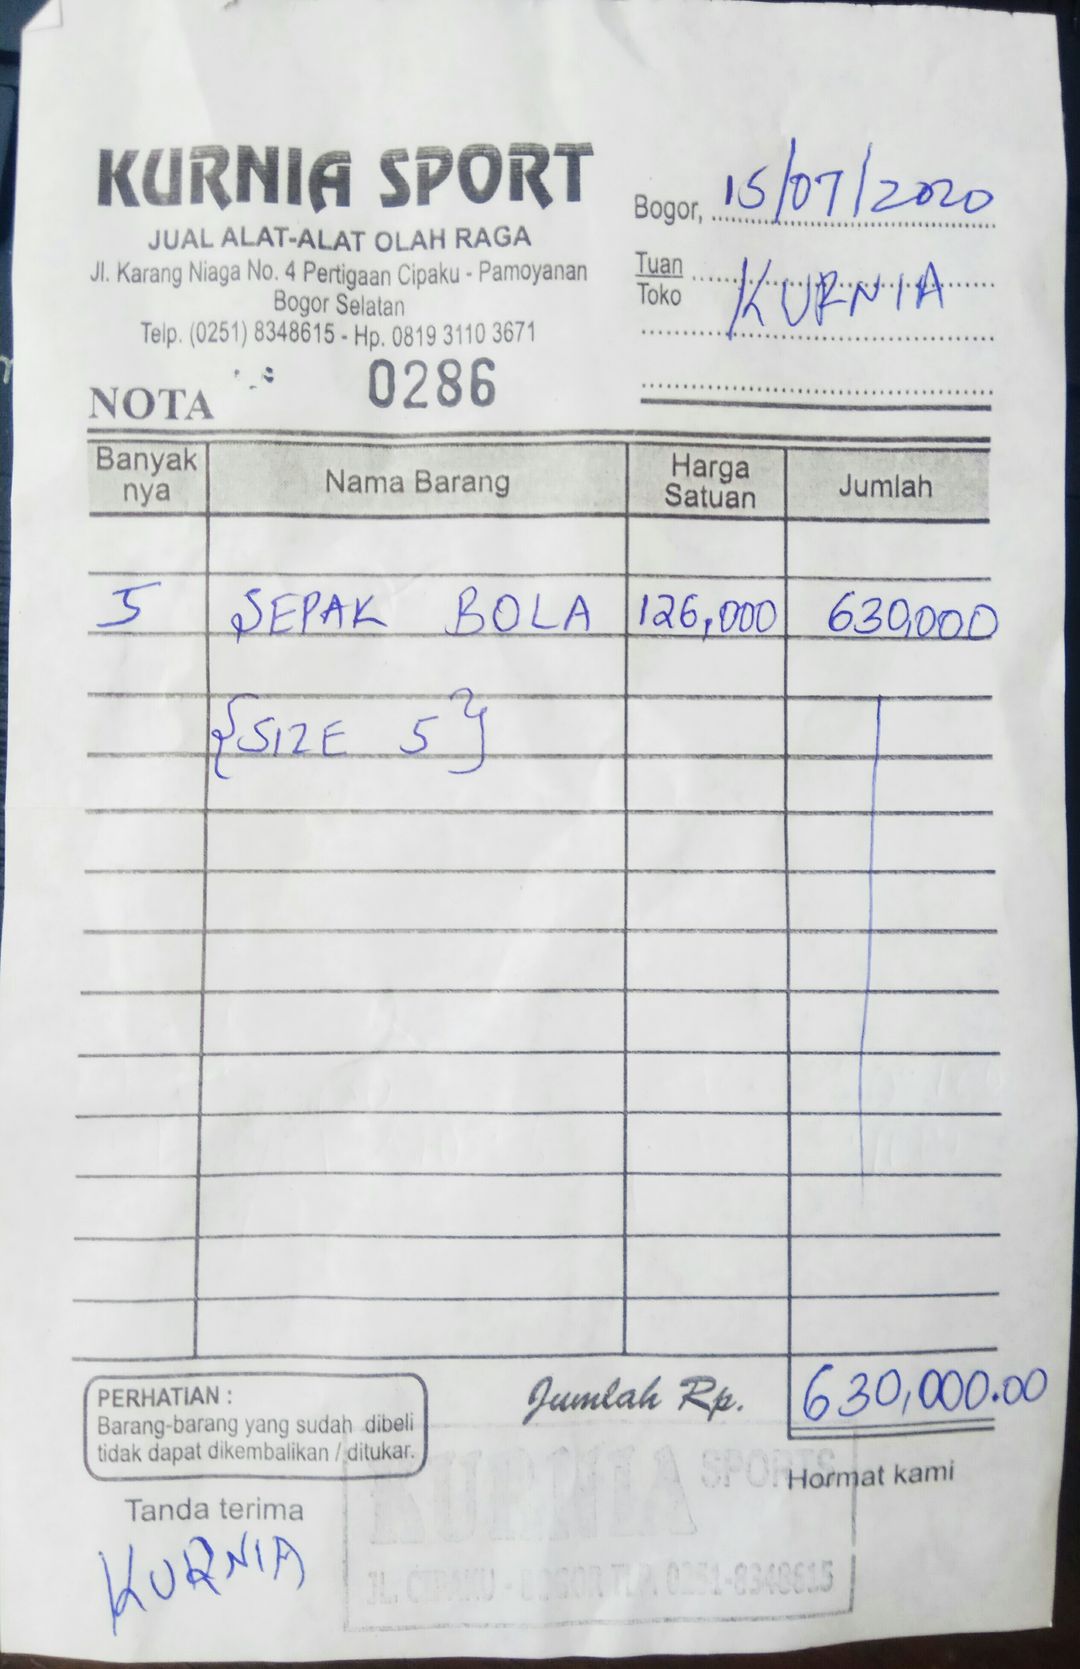 KURNIA SPORT
JUAL ALAT-ALAT OLAH RAGA
Jl. Karang Niaga No. 4 Pertigaan Cipaku - Pamoyanan
Bogor Selatan
Telp. (0251) 8348615 - Hp. 0819 3110 3671
Bogor, 15/07/2020
Tuan
Toko
KURNIA
NOTA 0286
Banyak nya Nama Barang Harga Satuan Jumlah
5 SEPAK BOLA 126,000 630,000
{SIZE 5}
Jumlah Rp. 630,000.00
PERHATIAN :
Barang-barang yang sudah dibeli
tidak dapat dikembalikan / ditukar.
Tanda terima
KURNIA
Hormat kami
KURNIA SPORTS
JL. CIPAKU - BOGOR TLP. 0251-8348615